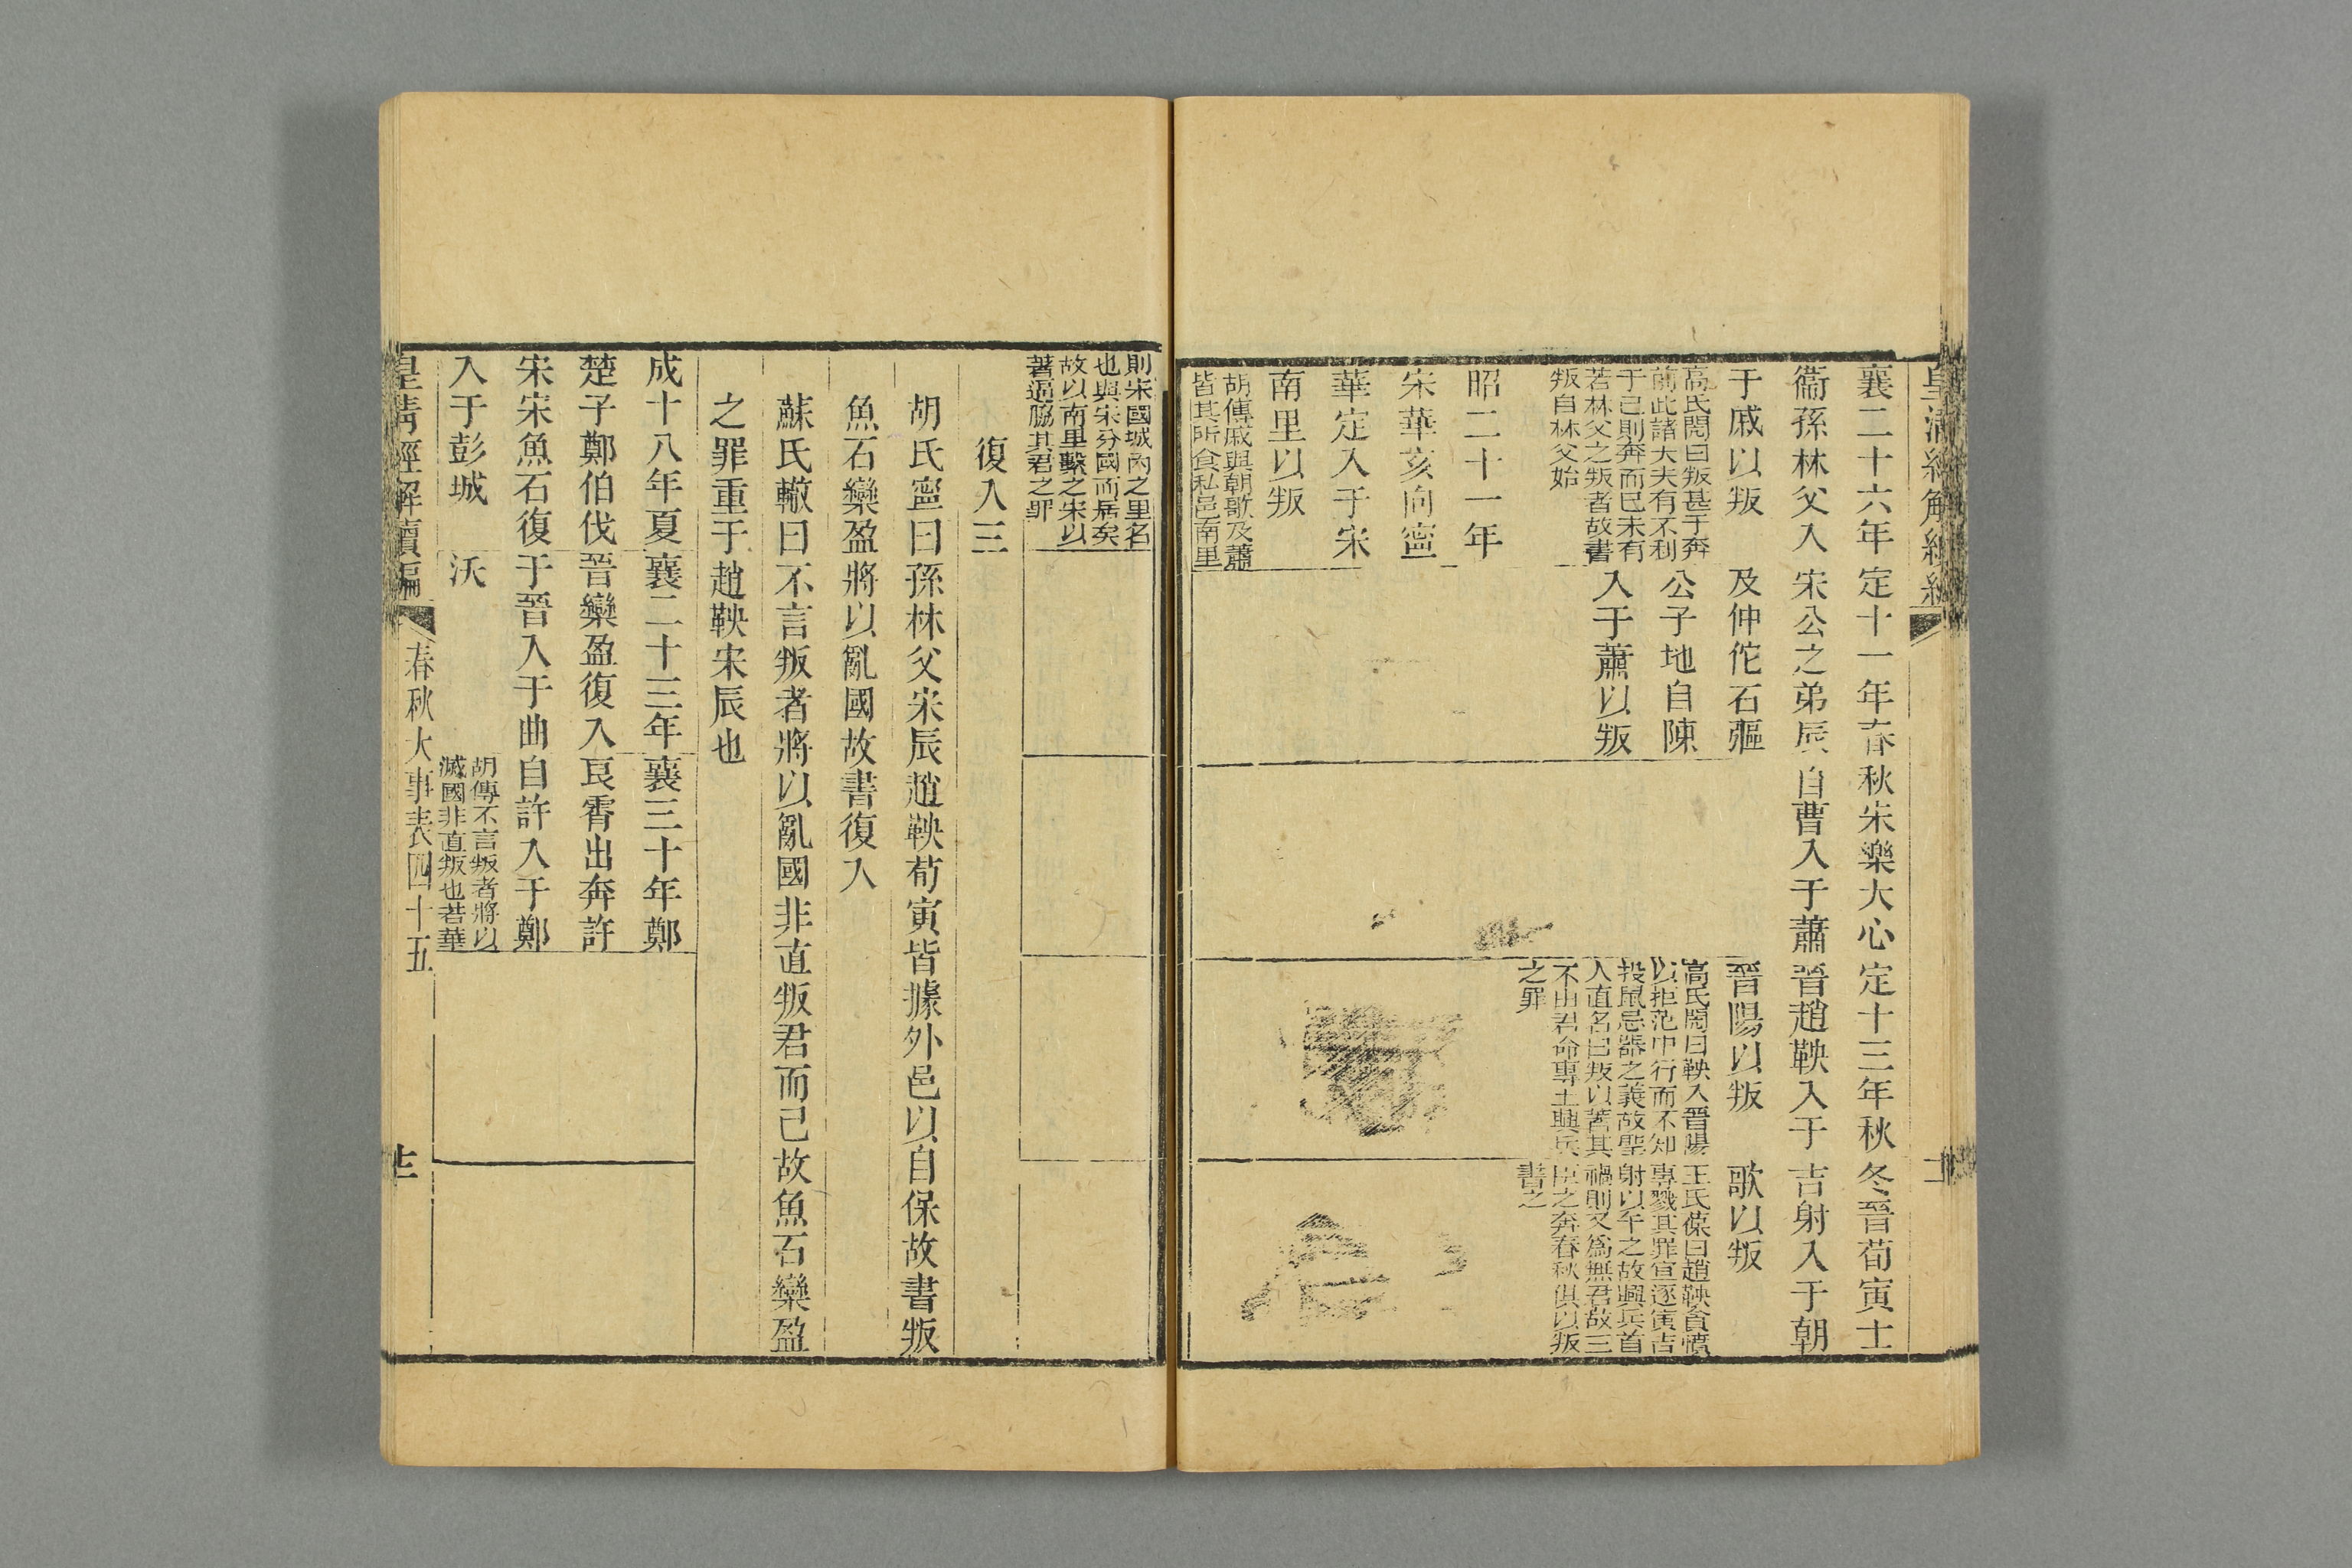 皇清經解續編
襄二十六年
衞孫林父入
于戚以叛
高氏閌曰叛甚于奔
前此諸大夫有不利
于己則奔而已未有
若林父之叛者故書
叛自林父始
昭二十一年
宋華亥向寧
華定入于宋
南里以叛
胡傳戚與朝歌及蕭
皆其所食私邑南里
定十一年春
宋公之弟辰
及仲佗石彄
公子地自陳
入于蕭以叛
秋宋樂大心
自曹入于蕭
定十三年秋
晉趙鞅入于
晉陽以叛
高氏閌曰鞅入晉陽
以拒范中行而不知
投鼠忌器之義故聖
人直名曰叛以著其
不由君命專土興兵
之罪
冬晉荀寅士
吉射入于朝
歌以叛
王氏葆曰趙鞅貪憤
專戮其罪宜逐寅吉
射以午之故興兵首
禍則又爲無君故三
臣之奔春秋俱以叛
書之
則宋國城內之里名
也與宋分國而居矣
故以南里繫之宋以
著逼脇其君之罪
復入三
胡氏寧曰孫林父宋辰趙鞅荀寅皆據外邑以自保故書叛
魚石欒盈將以亂國故書復入
蘇氏轍曰不言叛者將以亂國非直叛君而已故魚石欒盈
之罪重于趙鞅宋辰也
成十八年夏
楚子鄭伯伐
宋宋魚石復
入于彭城
襄二十三年
晉欒盈復入
于晉入于曲
沃
襄三十年鄭
良霄出奔許
自許入于鄭
胡傳不言叛者將以
滅國非直叛也若華
皇清經解續編
春秋大事表四十五